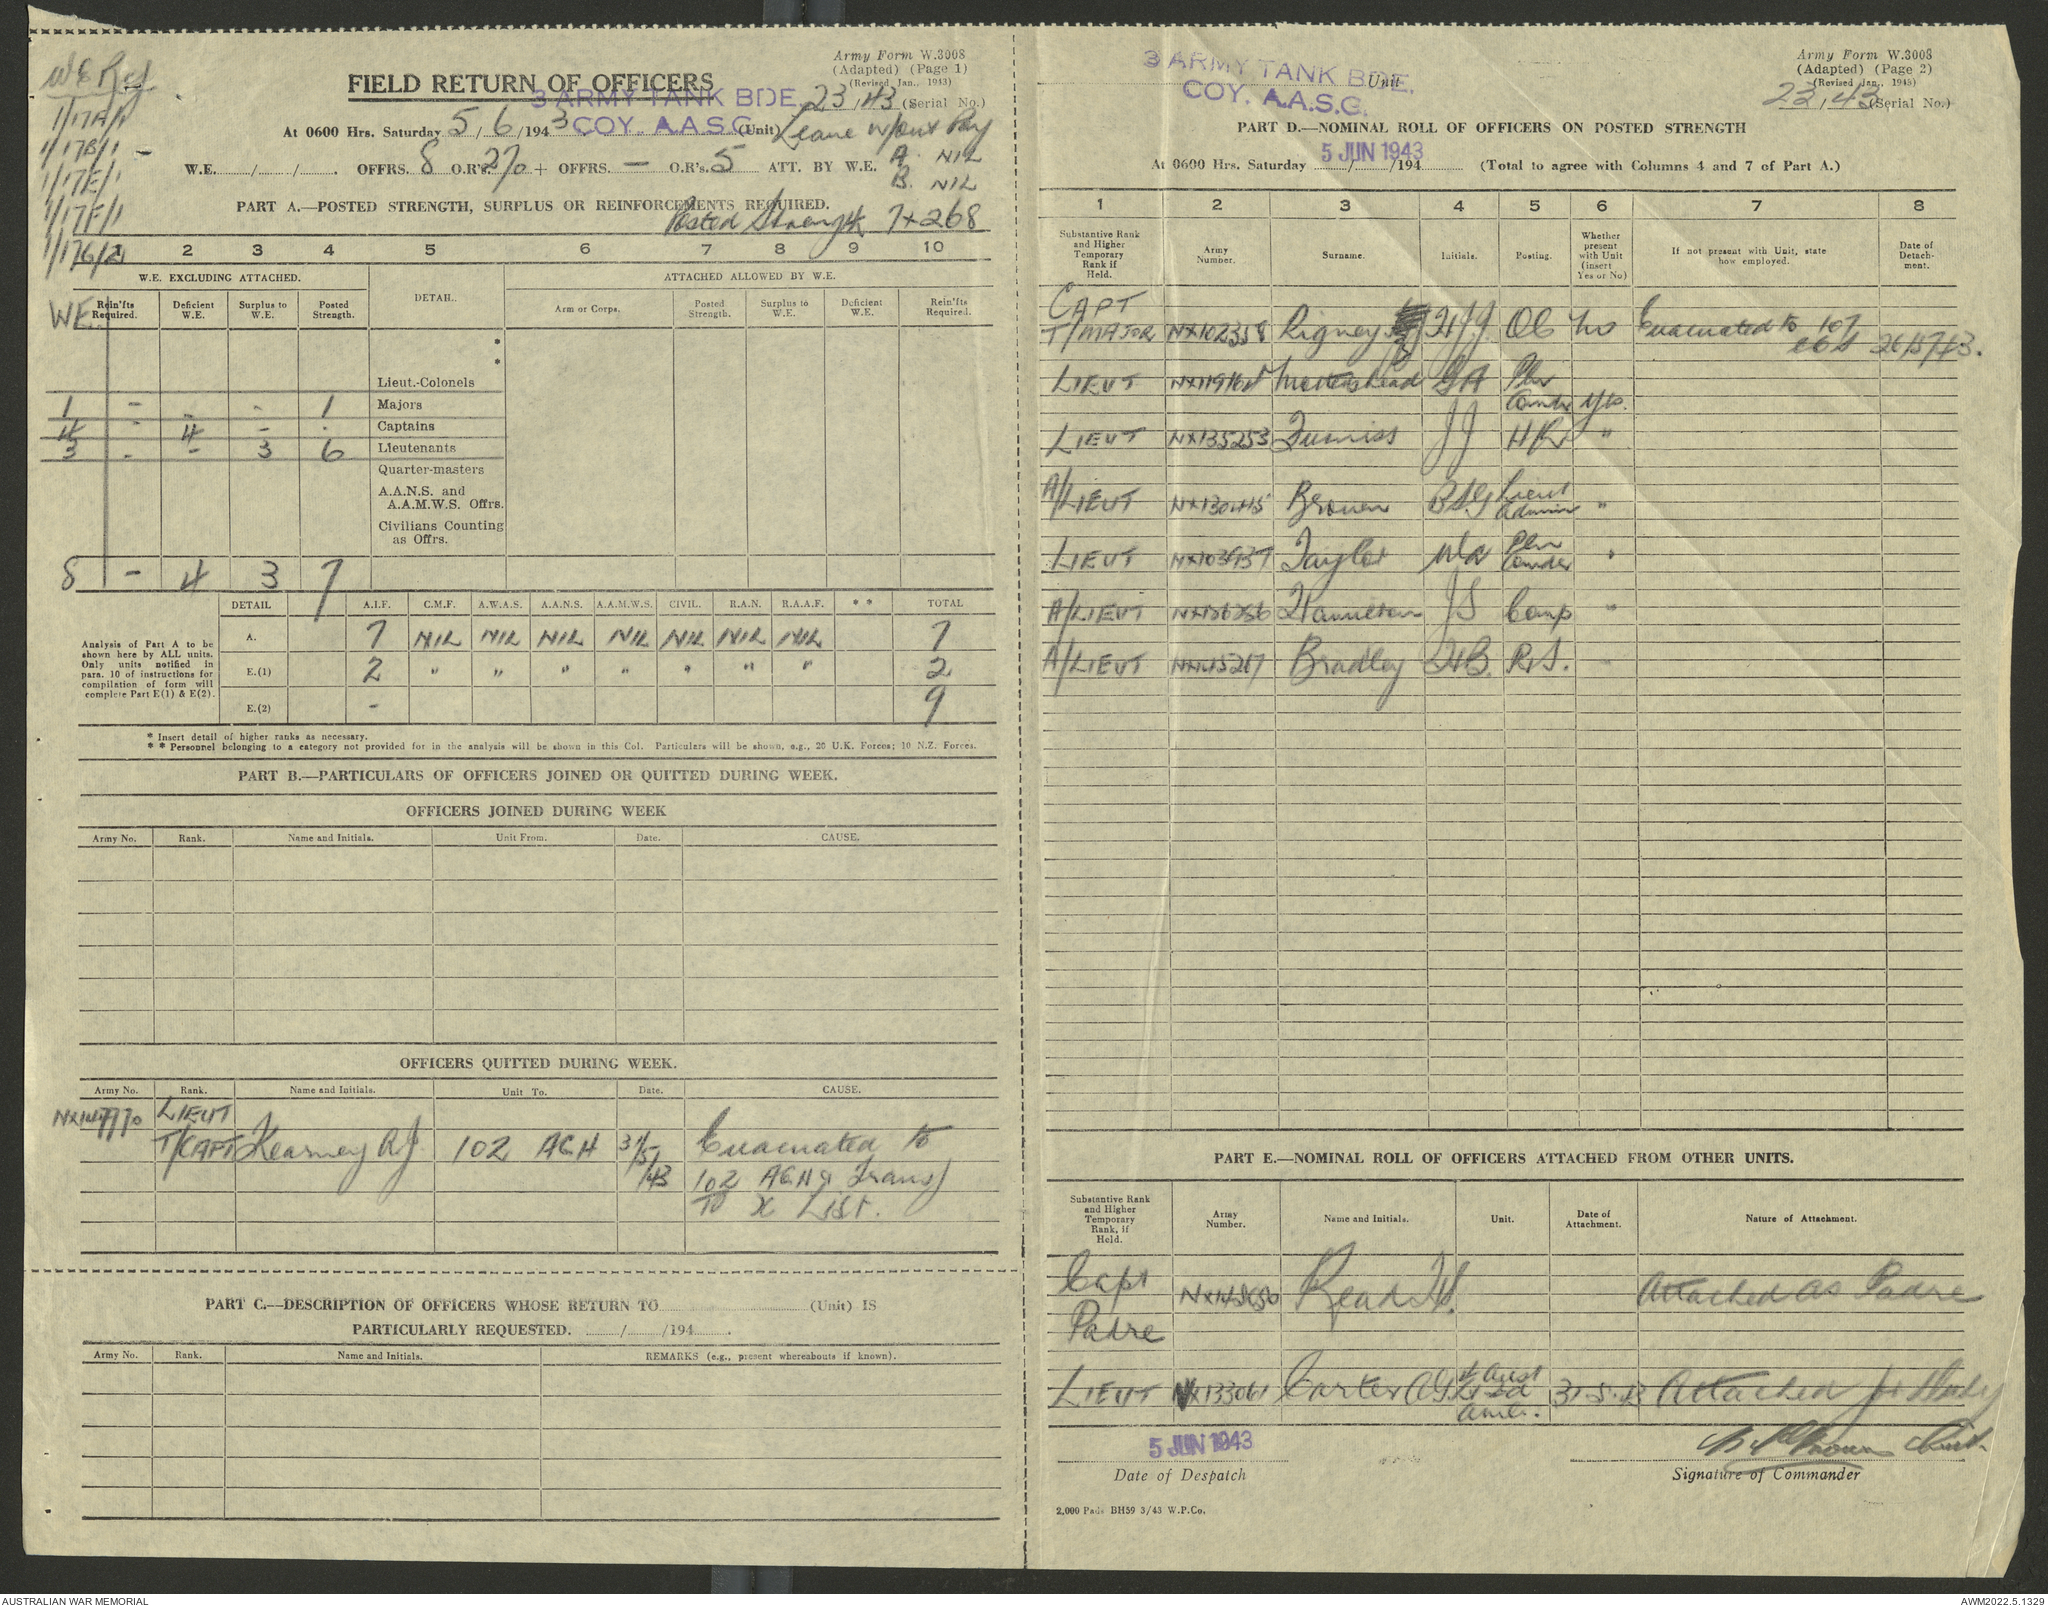 W E Ref
1/17A/1
1/17B/1 -
1/17E/1
1/17F/1
1/17G/2
Army Form W.3008
(Adapted) (Page 1)
(Revised Jan., 1943)
FIELD RETURN OF OFFICERS
3 ARMY TANK BDE. 23/43 (Serial No.)
At 0600 Hrs. Saturday 5/6/1943 COY. A.A.S.C. (Unit) Leave w/out Pay
W.E. / / . OFFRS. 8 O.R's. 270 + OFFRS. — O.R's. 5 ATT. BY W.E. A. NIL
B. NIL
PART A.—POSTED STRENGTH, SURPLUS OR REINFORCEMENTS REQUIRED.
Posted Strength 7+268
1 2 3 4 5 6 7 8 9 10
W.E. EXCLUDING ATTACHED. DETAIL. ATTACHED ALLOWED BY W.E.
WE. Rein'fts Required. Deficient W.E. Surplus to W.E. Posted Strength. Arm or Corps. Posted Strength. Surplus to W.E. Deficient W.E. Rein'fts Required.
*
*
Lieut.-Colonels
1 - - - 1 Majors
4 - 4 - . Captains
3 - - 3 6 Lieutenants
Quarter-masters
A.A.N.S. and
A.A.M.W.S. Offrs.
Civilians Counting
as Offrs.
8 - 4 3 7
DETAIL A.I.F. C.M.F. A.W.A.S. A.A.N.S. A.A.M.W.S. CIVIL. R.A.N. R.A.A.F. * * TOTAL
Analysis of Part A to be shown here by ALL units. Only units notified in para. 10 of instructions for compilation of form will complete Part E(1) & E(2).
A. 7 NIL NIL NIL NIL NIL NIL NIL 7
E.(1) 2 " " " " " " " 2
E.(2) - 9
* Insert detail of higher ranks as necessary.
* * Personnel belonging to a category not provided for in the analysis will be shown in this Col. Particulars will be shown, e.g., 20 U.K. Forces; 10 N.Z. Forces.
PART B.—PARTICULARS OF OFFICERS JOINED OR QUITTED DURING WEEK.
OFFICERS JOINED DURING WEEK
Army No. Rank. Name and Initials. Unit From. Date. CAUSE.
OFFICERS QUITTED DURING WEEK.
Army No. Rank. Name and Initials. Unit To. Date. CAUSE.
LIEUT
T/CAPT Kearney R J. 102 AGH 31/5/43 Evacuated to
102 AGH & Transf
to X LIST.
PART C.—DESCRIPTION OF OFFICERS WHOSE RETURN TO (Unit) IS
PARTICULARLY REQUESTED. / /194 .
Army No. Rank. Name and Initials. REMARKS (e.g., present whereabouts if known).
Army Form W.3008
(Adapted) (Page 2)
(Revised Jan., 1943)
3 ARMY TANK BDE. Unit
COY. A.A.S.C. 23/43 (Serial No.)
PART D.—NOMINAL ROLL OF OFFICERS ON POSTED STRENGTH
At 0600 Hrs. Saturday 5 JUN 1943 / /194 (Total to agree with Columns 4 and 7 of Part A.)
1 2 3 4 5 6 7 8
Substantive Rank and Higher Temporary Rank if Held. Army Number. Surname. Initials. Posting. Whether present with Unit (insert Yes or No) If not present with Unit, state how employed. Date of Detachment.
CAPT
T/MAJOR NX102358 Rigney H J J OC No Evacuated to 107 26/5/43.
LIEUT Mottershead G A Pln Comdr Yes.
LIEUT NX135253 J J H Q "
A/LIEUT Brown Lieut Admin "
LIEUT Taylor Pln Comder "
A/LIEUT Hamilton J S Comp "
A/LIEUT Bradley H B. R.S.
PART E.—NOMINAL ROLL OF OFFICERS ATTACHED FROM OTHER UNITS.
Substantive Rank and Higher Temporary Rank, if Held. Army Number. Name and Initials. Unit. Date of Attachment. Nature of Attachment.
Capt
Padre Read Attached as Padre
LIEUT 133061 Carter A G Aust Fd Amb. 31.5.43 Attached for Study
5 JUN 1943
Date of Despatch
Brown Lieut.
Signature of Commander
2,000 Pads BH59 3/43 W.P.Co.
AUSTRALIAN WAR MEMORIAL
AWM2022.5.1329